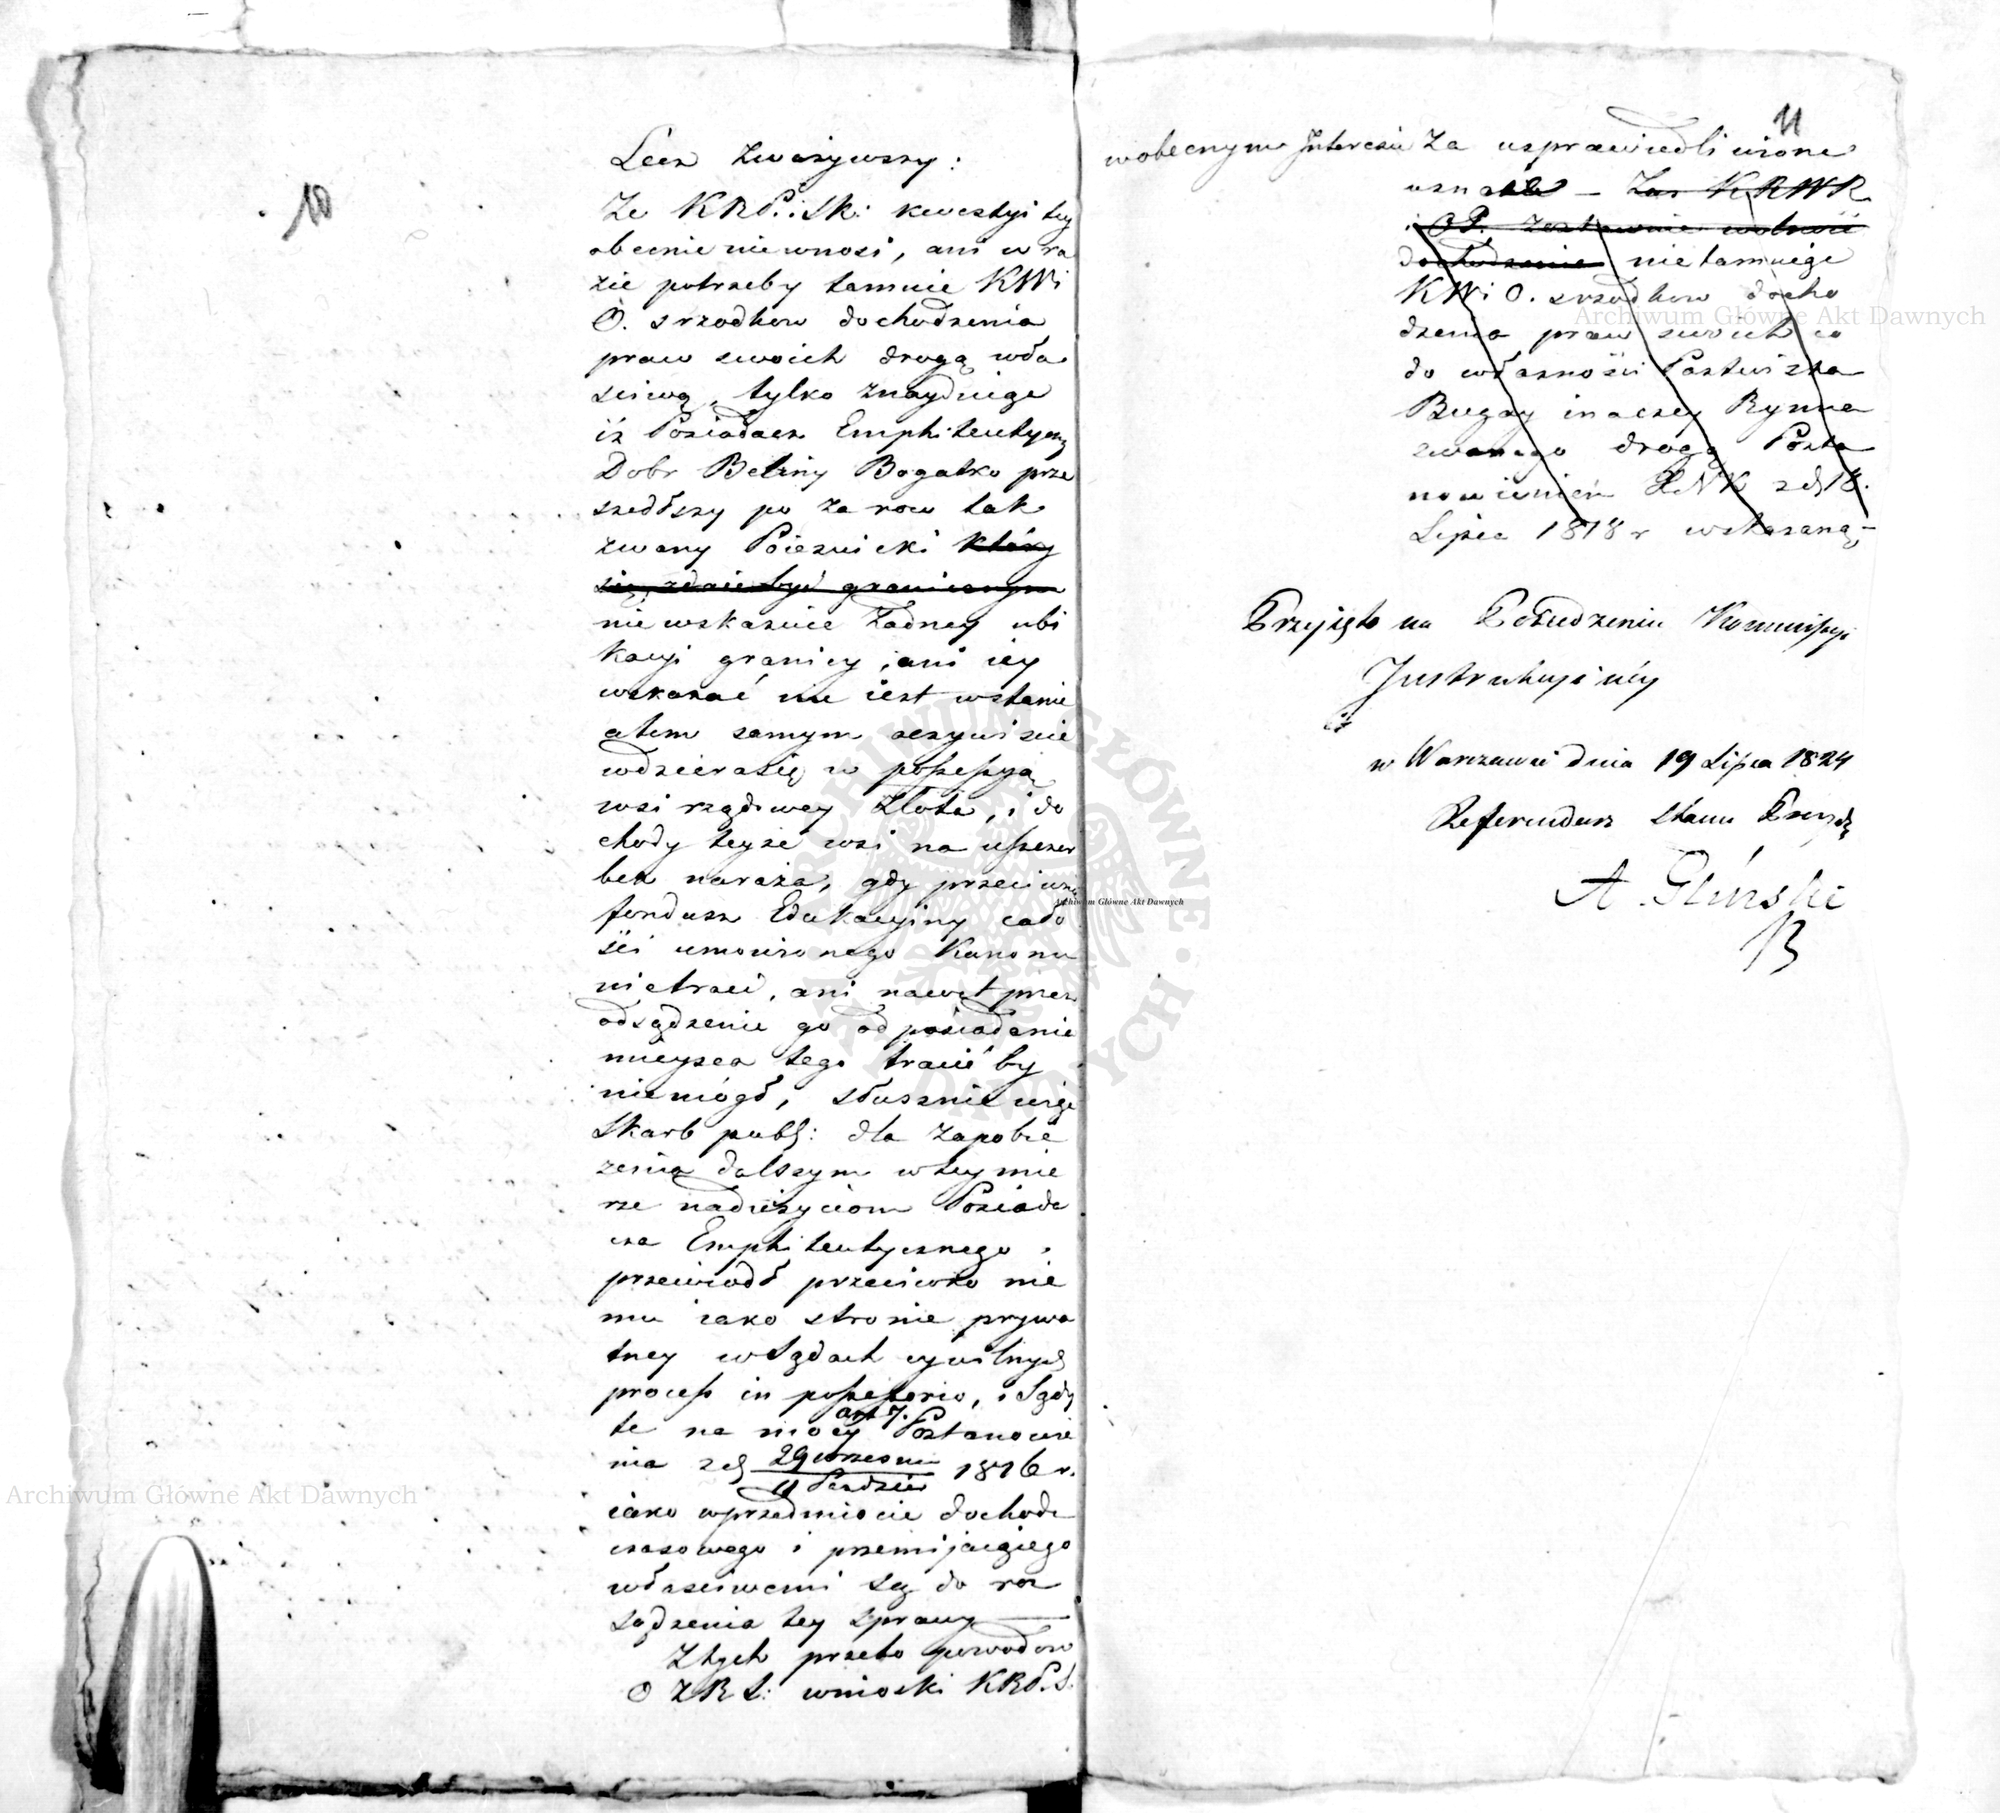 10
Lecz zważywszy:
Że KRP. i Sk: kwestyi tey
obecnie niewnosi, ani w ra
zie potrzeby tamuie KWi
O. srzodkow dochodzenia
praw swoich drogą wła
sciwą, tylko znayduiąc
iż Posiadacz Emphiteutyczny
Dobr Belziny Bogatko prze
szedłszy po za row tak
zwany Poiezuicki który
się zdaie być granicznym
nie wskazuie żadney ubi
kacyi granicy, ani iey
wskazać nie iest wstanie
a tem samym oczywiscie
wdziera się w possessyą
wsi rządowey Złota, i do
chody teyże wsi na uszczer
bek naraża, gdy przeciwnie
fundusz Edukacyiny cało
ści umowionego Kanonu
nietraci, ani nawet przez
odsądzenie go od posiadania
mieysca tego tracić by
niemógł, słusznie więc
Skarb publ: dla zapobie
żenia dalszym w tey mie
rze nadużyciom Posiada
cza Emphiteutycznego
przewiodł przeciwko nie
mu iako stronie prywa
tney w Sądach cywilnych
process in possessorio, i Sądy
te na mocy art 7. Postanowie
nia z d 29 wrzesnia / 11 Pazdzier 1816 r.
iako w przedmiocie dochodu
czasowego i przemijaiącego
właściwemi są do roz
sądzenia tey sprawy
Z tych przeto powodow
O ZRS: wnioski KRP.S.
11
w obecnym Interesie za usprawiedliwione
uznaie – Zas KRWR
i OP. zostawuie wolność
dochodzenia nietamuiąc
KWi O. srzodkow docho
dzenia praw swoich co
do własności Pastwiska
Bugay inaczey Rynna
zwanego drogą Posta
nowieniem XNK z d 18.
Lipca 1818 r wskazaną –
Przyięto na Posiedzeniu Kommissyi
Instrukcyiney
w Warszawie dnia 19 Lipca 1824
Referendarz Stanu Prezyd
A. Gliński
Archiwum Główne Akt Dawnych
Archiwum Główne Akt Dawnych
Archiwum Główne Akt Dawnych
ARCHIWUM GŁÓWNE AKT DAWNYCH